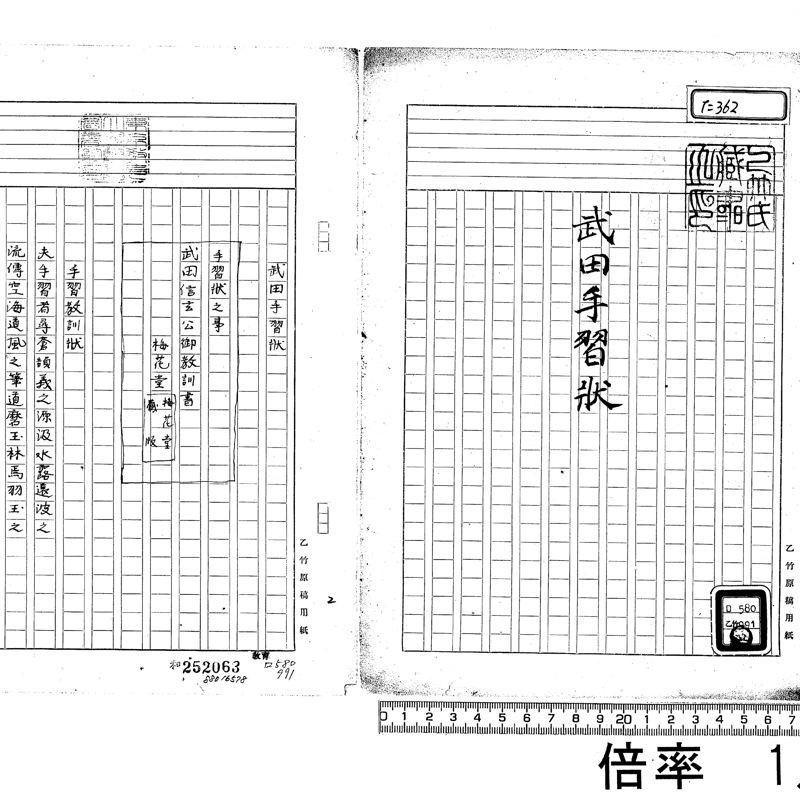 T=362
乙竹氏
蔵書
武田手習狀
乙竹原稿用紙
ロ 580
乙竹991
武田手習狀
手習狀之事
武田信玄公御教訓書
梅花堂
梅花堂
藏版
手習教訓狀
夫手習者尋蒼頡義之源汲水露遠波之
流傳空海道風之筆道磨玉林馬羽玉之
乙竹原稿用紙
2
教育
和252063
88016578
ロ580
991
0 1 2 3 4 5 6 7 8 9 20 1 2 3 4 5 6 7
倍率 1